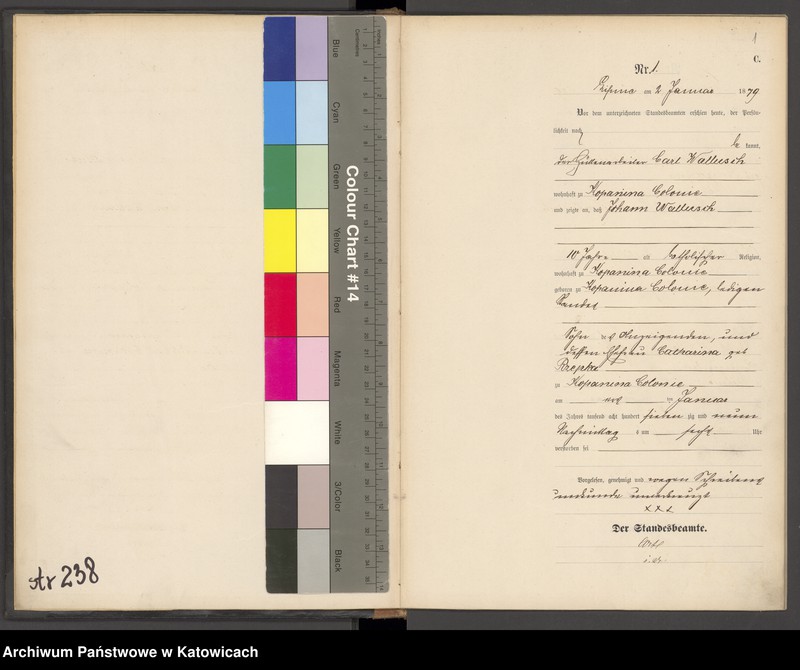 Ar 238
Colour Chart #14
Blue
Cyan
Green
Yellow
Red
Magenta
White
3/Color
Black
Centimetres
Inches
1
C.
Nr. 1.
am 2 Januar 1879
Vor dem unterzeichneten Standesbeamten erschien heute, der Persön-
lichkeit nach
be kannt,
der Hüttenarbeiter Carl Wallusch
wohnhaft zu Kopanina Colonie
und zeigte an, daß Johann Wallusch
10 Jahre alt katholischer Religion,
wohnhaft zu Kopanina Colonie
geboren zu Kopanina Colonie, ledigen
Standes
Sohn des Anzeigenden, und
dessen Ehefrau Catharina geb
Rzepka
zu Kopanina Colonie
am ten Januar
des Jahres tausend acht hundert sieben zig und neun
Nachmittag s um sechs Uhr
verstorben sei
Vorgelesen, genehmigt und wegen Schreibens
unkunde unterkreuzt
x x x
Der Standesbeamte.
Archiwum Państwowe w Katowicach